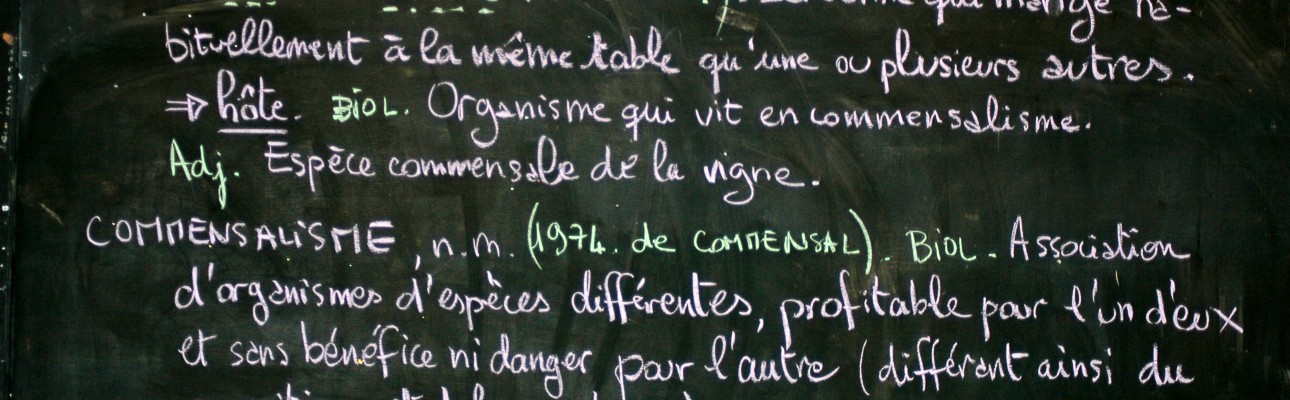 qui mange ha-
bituellement à la même table qu'une ou plusieurs autres.
⇒ hôte. BIOL. Organisme qui vit en commensalisme.
Adj. Espèce commensale de la vigne.
COMMENSALISME, n.m. (1974. de COMMENSAL). BIOL. Association
d'organismes d'espèces différentes, profitable pour l'un d'eux
et sans bénéfice ni danger pour l'autre (différent ainsi du